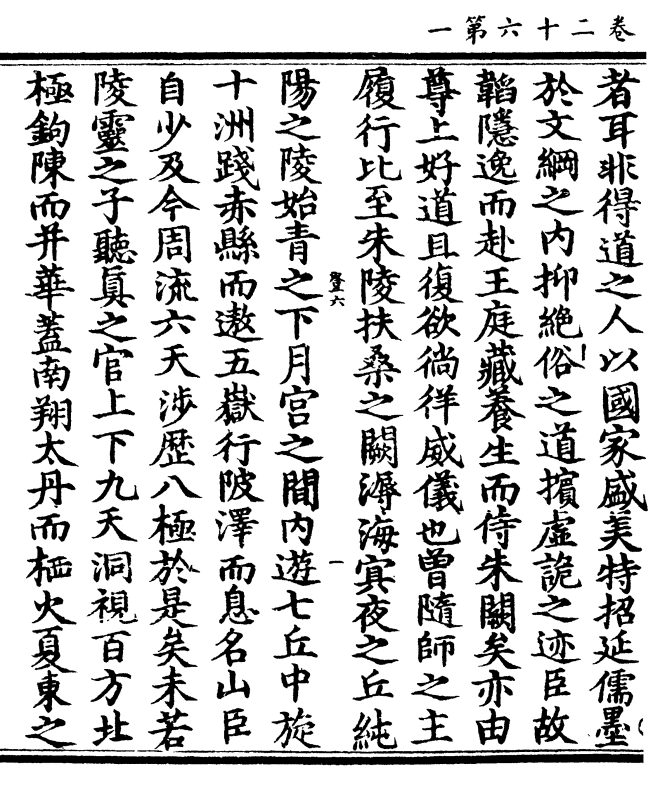 卷二十六第一
者耳非得道之人以國家盛美特招延儒墨
於文綱之内抑絶俗之道擯虛詭之迹臣故
韜隱逸而赴王庭藏養生而侍朱闕矣亦由
尊上好道且復欲徜徉威儀也曾隨師之主
履行比至朱陵扶桑之闕溽海冥夜之丘純
陽之陵始青之下月宮之間内遊七丘中旋
十洲踐赤縣而遨五嶽行陂澤而息名山臣
自少及今周流六天涉歴八極於是矣未若
陵靈之子聽真之官上下九天洞視百方北
極鉤陳而并華蓋南翔太丹而栖火夏東之
登六
一